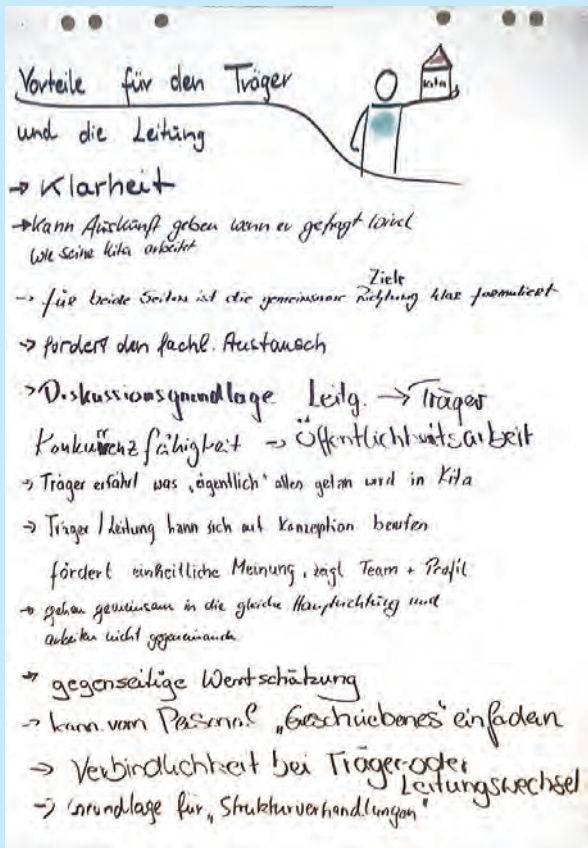 Vorteile für den Träger
Kita
und die Leitung
→ Klarheit
→ Kann Auskunft geben wenn er gefragt wird
wie seine Kita arbeitet
Ziele
→ für beide Seiten ist die gemeinsame Richtung klar formuliert
→ fordert den fachl. Austausch
> Diskussionsgrundlage Leitg. → Träger
Konkurrenzfähigkeit → Öffentlichkeitsarbeit
→ Träger erfährt was „eigentlich" alles getan wird in Kita
→ Träger / Leitung kann sich auf Konzeption berufen
fördert einheitliche Meinung, zeigt Team + Profil
→ gehen gemeinsam in die gleiche Hauptrichtung und
arbeiten nicht gegeneinander
→ gegenseitige Wertschätzung
→ kann vom Personal „Geschriebenes" einfordern
→ Verbindlichkeit bei Träger- oder
Leitungswechsel
→ Grundlage für „Strukturverhandlungen"